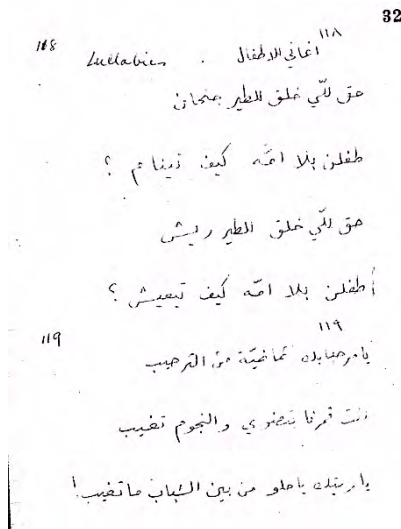 32
118 Lullabies . اغاني الاطفال ١١٨
حق للّي خلق للطير جنحان
طفلن بلا امّه كيف نينام ؟
حق للّي خلق للطير ريش
طفلن بلا امّه كيف تيعيش ؟
119 ١١٩
يا مرحبا بك ثمانميّة من الترحيب
انت قمرنا تتضوي والنجوم تغيب
يا ريتك يا حلو من بين الشباب ما تغيب !